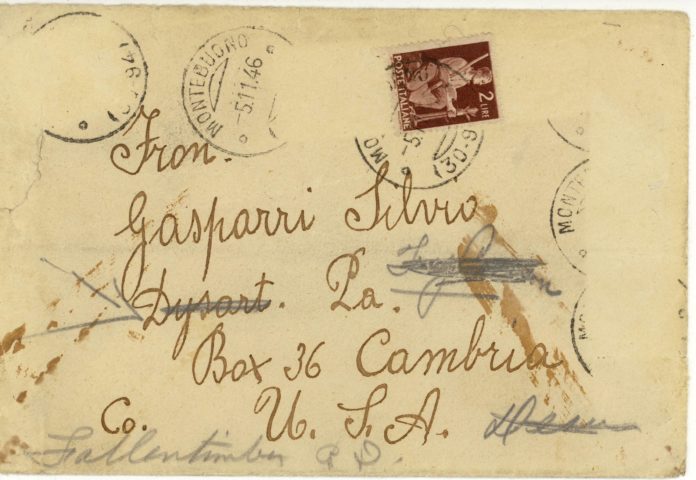 MONTEBUONO
-5.11.46
POSTE ITALIANE
2 LIRE
(30-9
Fron.
Gasparri Silvio
Dysart. Pa.
Box 36 Cambria
Co. U. S. A.
Fallentimber